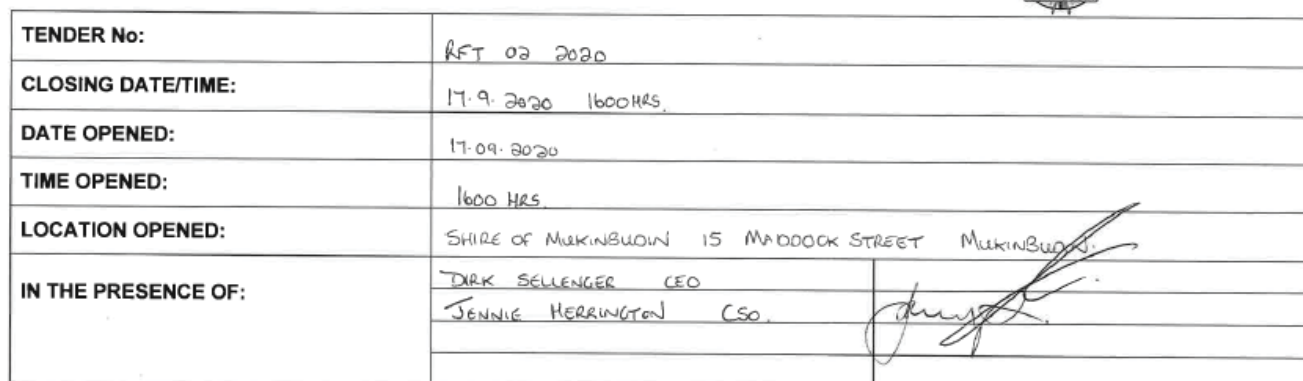 TENDER No: RFT 02 2020
CLOSING DATE/TIME: 17.9.2020 1600HRS.
DATE OPENED: 17.09.2020
TIME OPENED: 1600 HRS.
LOCATION OPENED: SHIRE OF MUKINBUDIN 15 MADDOCK STREET MUKINBUDIN.
IN THE PRESENCE OF: DIRK SELLENGER CEO
JENNIE HERRINGTON CSO.